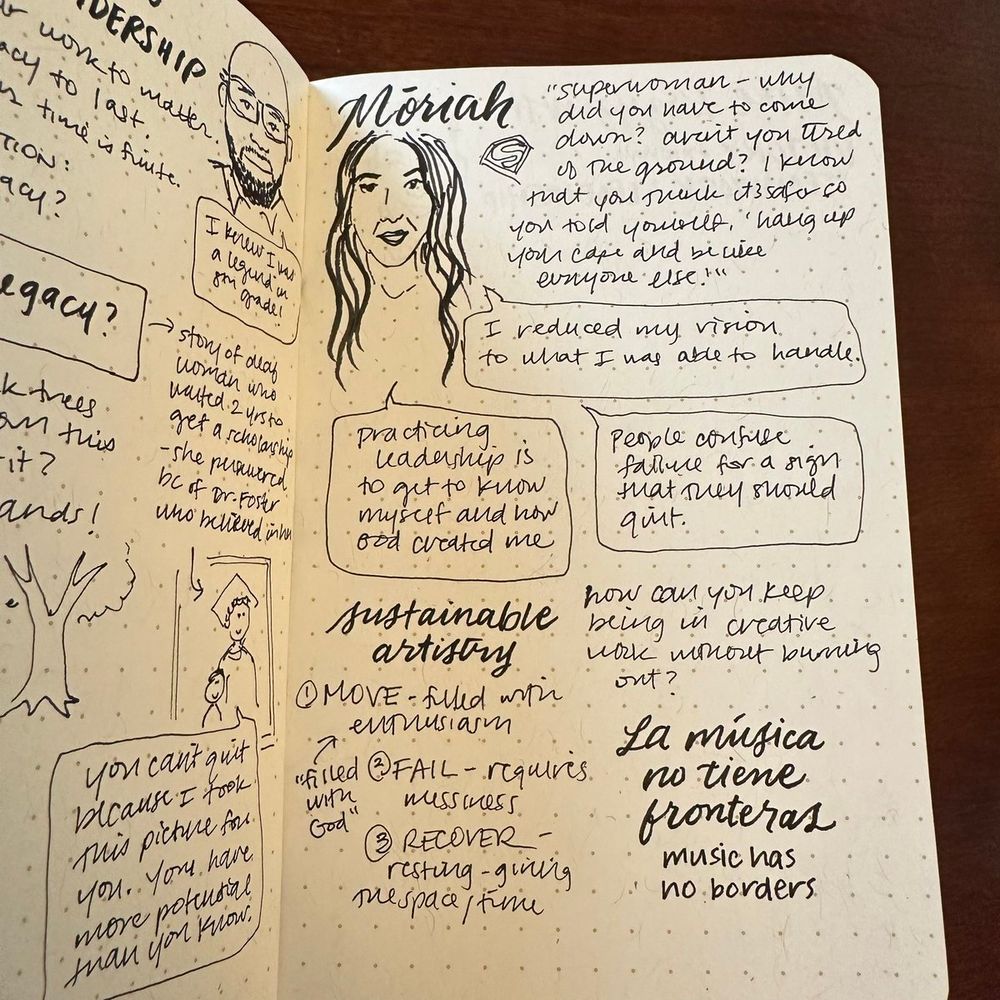 DERSHIP
work to matter
acy to last.
time is finite.
TION:
acy?
I knew I was
a legend in
8th grade!
egacy?
→ story of deaf
woman who
waited 2 yrs to
get a scholarship
- she persevered
bc of Dr. Foster
who believed in her
k trees
this
it?
ands!
you can't quit
because I took
this picture for
you. You have
more potential
than you know.
Moriah
"superwoman - why
did you have to come
down? aren't you tired
of the ground? I know
that you think it's safer so
you told yourself, 'hang up
your cape and be like
everyone else!'"
S
I reduced my vision
to what I was able to handle.
practicing
leadership is
to get to know
myself and how
God created me
People confuse
failure for a sign
that they should
quit.
sustainable
artistry
① MOVE - filled with
enthusiasm
"filled
with
God"
② FAIL - requires
messiness
③ RECOVER -
resting - giving
the space/time
how can you keep
being in creative
work without burning
out?
La música
no tiene
fronteras
music has
no borders